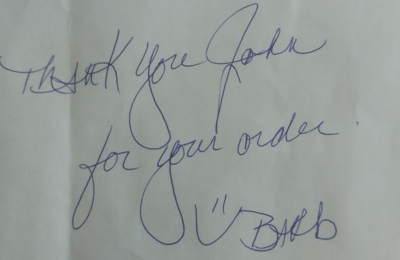 Thank you John
for your order.
Barb